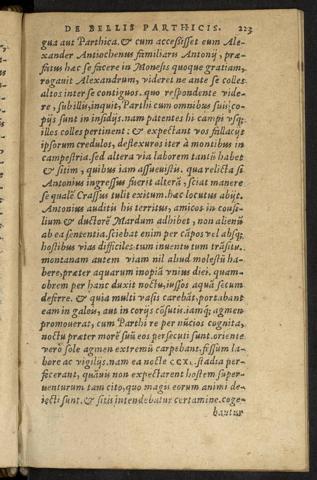 DE BELLIS PARTHICIS. 223
gua aut Parthica. & cum accessisset eum Ale-
xander Antiochenus familiaris Antonij, præ-
fatus hac se facere in Monesis quoque gratiam,
rogauit Alexandrum, videret ne ante se colles
altos inter se contiguos. quo respondente vide-
re, sub illis, inquit, Parthi cum omnibus suis co-
pijs sunt in insidijs. nam patentes hi campi vsq;
illos colles pertinent: & expectant vos fallacijs
ipsorum credulos, deflexuros iter à montibus in
campestria. sed altera via laborem tantũ habet
& sitim, quibus iam assueuistis. qua relicta si
Antonius ingressus fuerit alterã, sciat manere
se qualẽ Crassus tulit exitum. hæc locutus abijt.
Antonius auditis his territus, amicos in consi-
lium & ductorẽ Mardum adhibet, non alienũ
ab ea sententia. sciebat enim per cãpos vel absq;
hostibus vias difficiles tum inuentu tum trãsitu.
montanam autem viam nil aliud molestũ ha-
bere, præter aquarum inopiã vnius diei. quam-
obrem per hanc duxit noctu, iussos aquã secum
deferre. & quia multis vasis carebãt, portabant
eam in galeis, aut in corijs cõsutis. iamq; agmen
promouerat, cum Parthi re per nũcios cognita,
noctu præter morẽ suũ eos persecuti sunt. oriente
verò sole agmen extremũ carpebant. fissum la-
bore ac vigilijs. nam ea nocte CCXL. stadia per-
fecerant, quãuis non expectarent hostem super-
uenturum tam cito, quo magis eorum animi de-
iecti sunt. & sitis intendebatur certamine. coge-
bantur